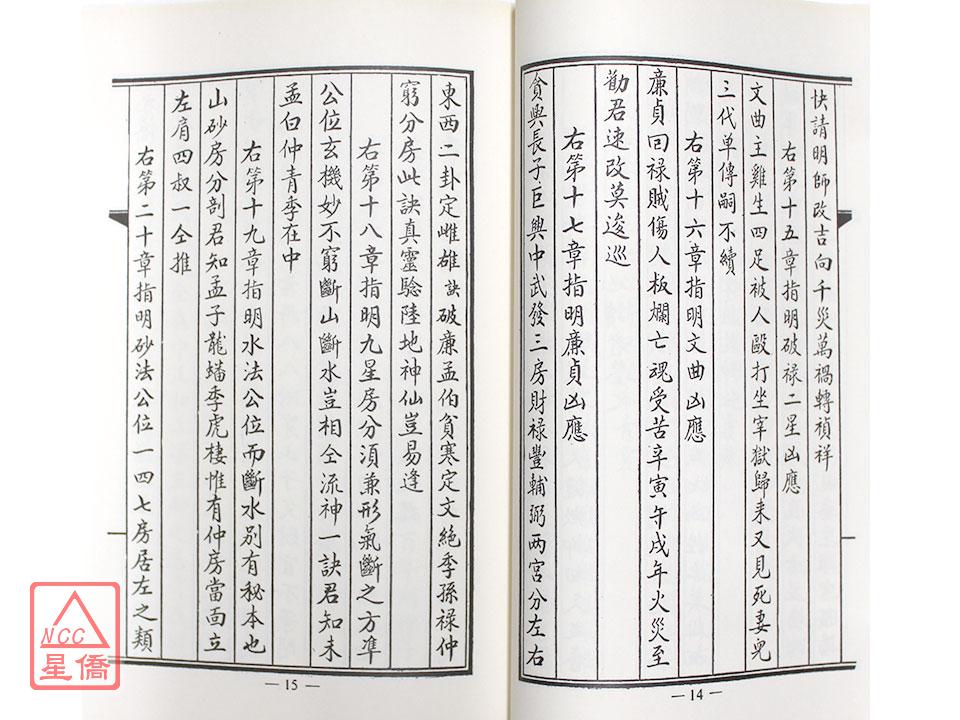 快請明師改吉向千災萬禍轉禎祥
右第十五章指明破祿二星凶應
文曲主雞生四足被人毆打坐宰獄歸来又見死妻兒
三代单傳嗣不續
右第十六章指明文曲凶應
廉貞回禄賊傷人板爛亡魂受苦辛寅午戌年火災至
勸君速改莫逡巡
右第十七章指明廉貞凶應
貪興長子巨興中武發三房財禄豐輔弼两宮分左右
— 14 —
東西二卦定雌雄訣破廉孟伯貧寒定文絶季孫禄仲
窮分房此訣真靈驗陸地神仙豈易逢
右第十八章指明九星房分須兼形氣斷之方準
公位玄機妙不窮斷山斷水豈相仝流神一訣君知未
孟白仲青季在中
右第十九章指明水法公位而斷水別有秘本也
山砂房分剖君知孟子龍蟠季虎棲惟有仲房當面立
左肩四叔一仝推
右第二十章指明砂法公位一四七房居左之類
— 15 —
NCC
星僑